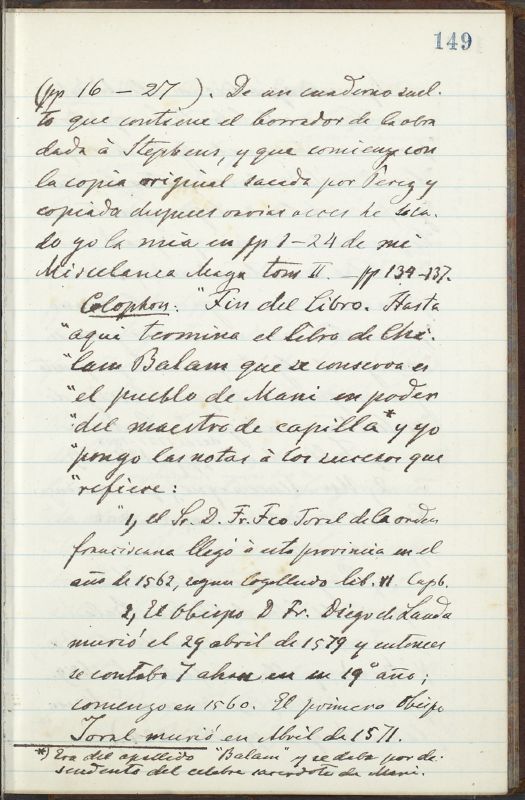 149
(pp 16 – 27). De un cuaderno suel-
to que contiene el borrador de la obra
dada à Stephens, y que comienza con
la copia original sacada por Perez y
copiada despues varias veces he saca-
do yo la mia en pp 1–24 de mi
Miscelanea Maya tom II. – pp 134–137.
Colophon: "Fin del Libro. Hasta
"aqui termina el libro de Chi-
"lam Balam que se conserva en
"el pueblo de Mani en poder
"del maestro de capilla* y yo
"pongo las notas à los sucesos que
"refiere:
"1, el Sr. D. Fr. Fco Toral de la orden
franciscana llegó à esta provincia en el
año de 1562, segun Cogolludo lib. VI Cap 6.
2, El Obispo D Fr. Diego de Landa
murió el 29 abril de 1579 y entonces
se contaba 7 ahau en su 19° año;
comenzo en 1560. El primero Obispo
Toral murió en Abril de 1571.
*) Era del apellido "Balam" y se daba por de-
scendente del celebre sacerdote de Mani.